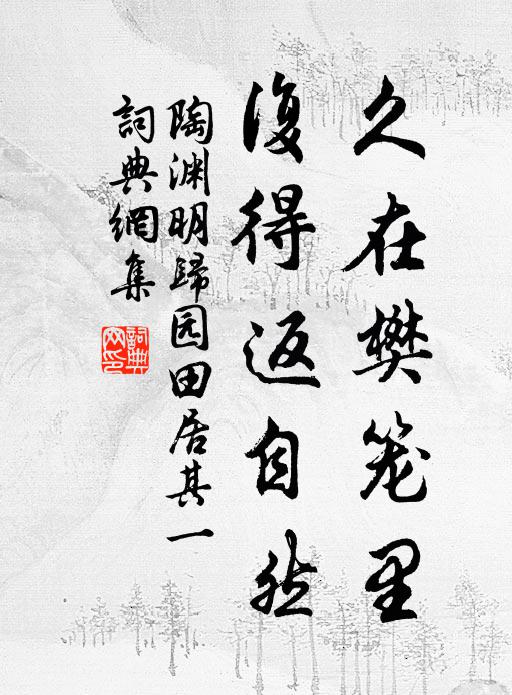 久在樊笼里
復得返自然
陶渊明歸园田居其一
詞典網集
詞典
网印